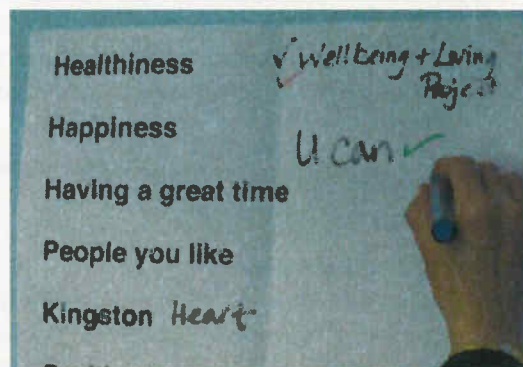 Healthiness
✓ Wellbeing + Living
Project
Happiness
U can ✓
Having a great time
People you like
Kingston Heart